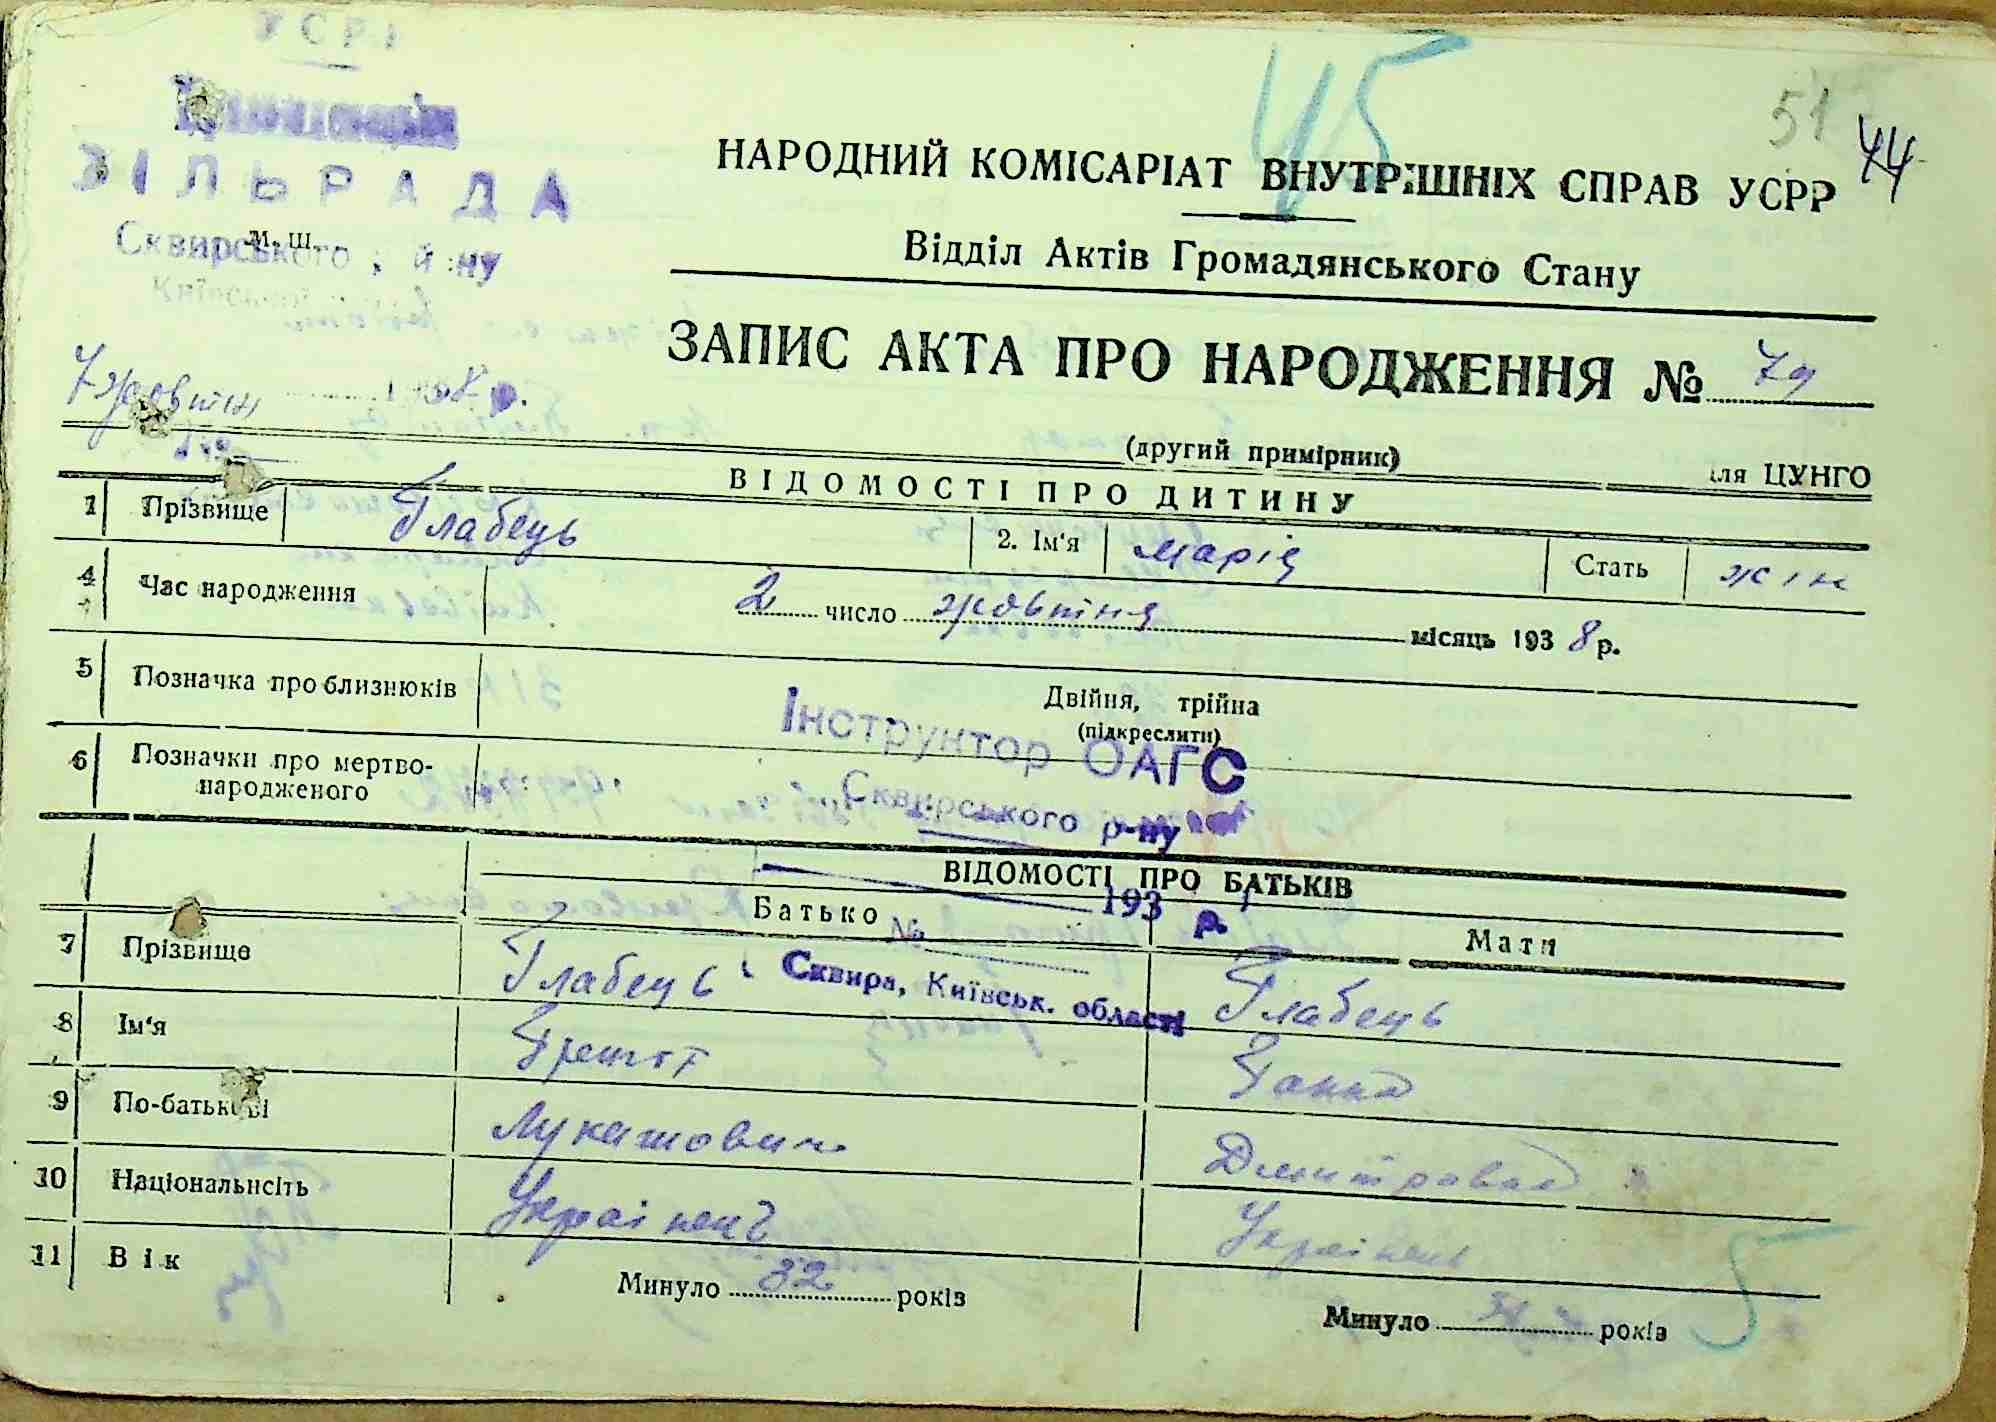 УСРР
СІЛЬРАДА
м. ш.
Сквирського р-й-ну
Київської
45
51
44
НАРОДНИЙ КОМІСАРІАТ ВНУТРІШНІХ СПРАВ УСРР
Відділ Актів Громадянського Стану
ЗАПИС АКТА ПРО НАРОДЖЕННЯ № 79
7 жовтня 1938 р.
(другий примірник)
для ЦУНГО
ВІДОМОСТІ ПРО ДИТИНУ
1 Прізвище Глабець 2. Ім'я Марія Стать жін
4 Час народження 2 число жовтня місяць 1938 р.
5 Позначка про близнюків Двійня, трійна
(підкреслити)
6 Позначки про мертво-
народженого
Інструктор ОАГС
Сквирського р-ну
193 р.
№
Сквира, Київськ. області
ВІДОМОСТІ ПРО БАТЬКІВ
Батько Мати
7 Прізвище Глабець Глабець
8 Ім'я Ганна
9 По-батькові Лукашович Дмитровна
10 Національність Українець Українець
11 Вік Минуло 32 років Минуло років
5